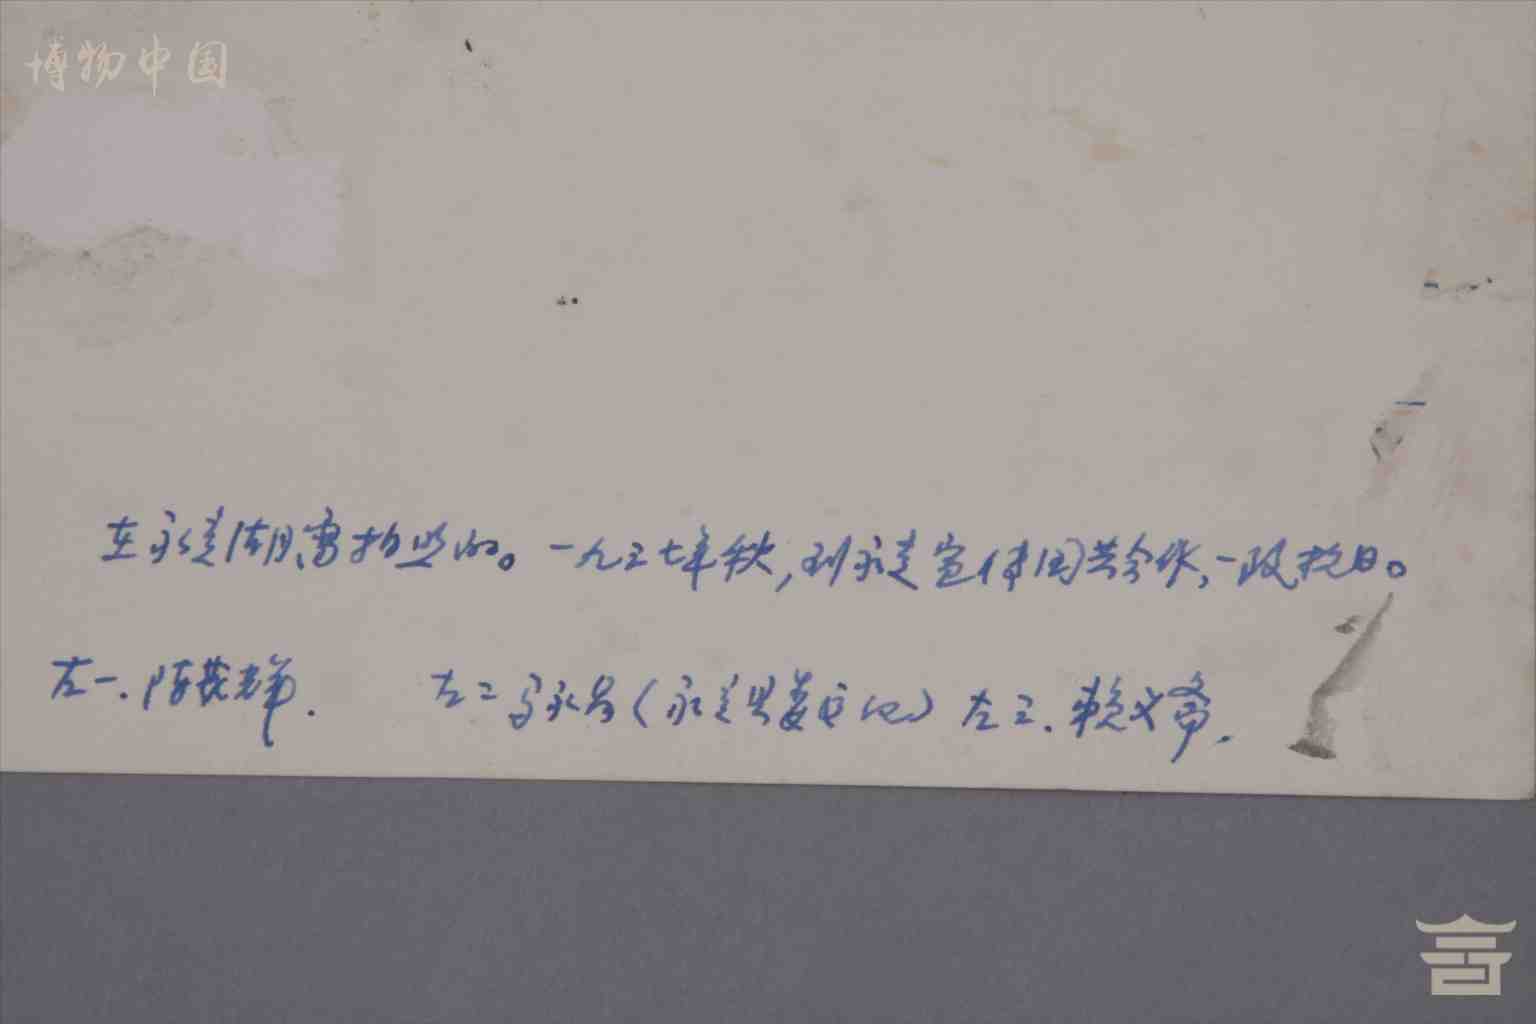 博物中国
在永定湖雷拍照的。一九三七年秋,到永定宣传国共合作,一致抗日。
左一.陈茂辉. 左二 马永昌(永定县姜文化) 左三.赖义斋.